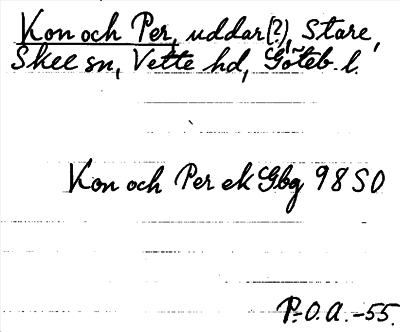 Kon och Per, uddar(?), Stare,
Skee sn, Vette hd, Göteb. l.
Kon och Per ek Gbg 98 SO
P.O.A. -55.